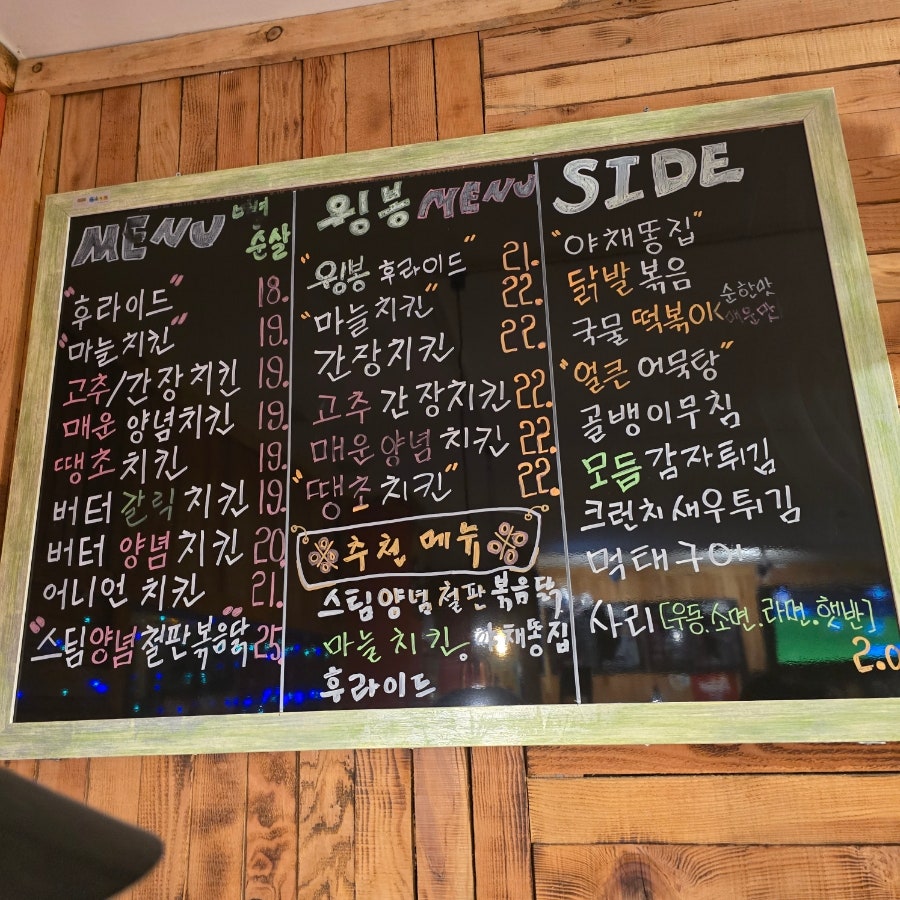 MENU
순살
"후라이드" 18.
"마늘치킨" 19.
고추/간장치킨 19.
매운 양념치킨 19.
땡초 치킨 19.
버터 갈릭 치킨 19.
버터 양념 치킨 20.
어니언 치킨 21.
"스팀양념철판볶음닭" 25.
윙봉 MENU
"윙봉 후라이드" 21.
"마늘치킨" 22.
간장치킨 22.
고추 간장치킨 22.
매운양념 치킨 22.
"땡초치킨" 22.
추천 메뉴
스팀양념철판볶음닭,
마늘치킨, 야채똥집
후라이드
SIDE
"야채똥집"
닭발볶음
국물 떡볶이< 순한맛
매운맛
"얼큰 어묵탕"
골뱅이무침
모듬감자튀김
크런치새우튀김
먹태구이
사리 [우동.소면.라면.햇반]
2.0